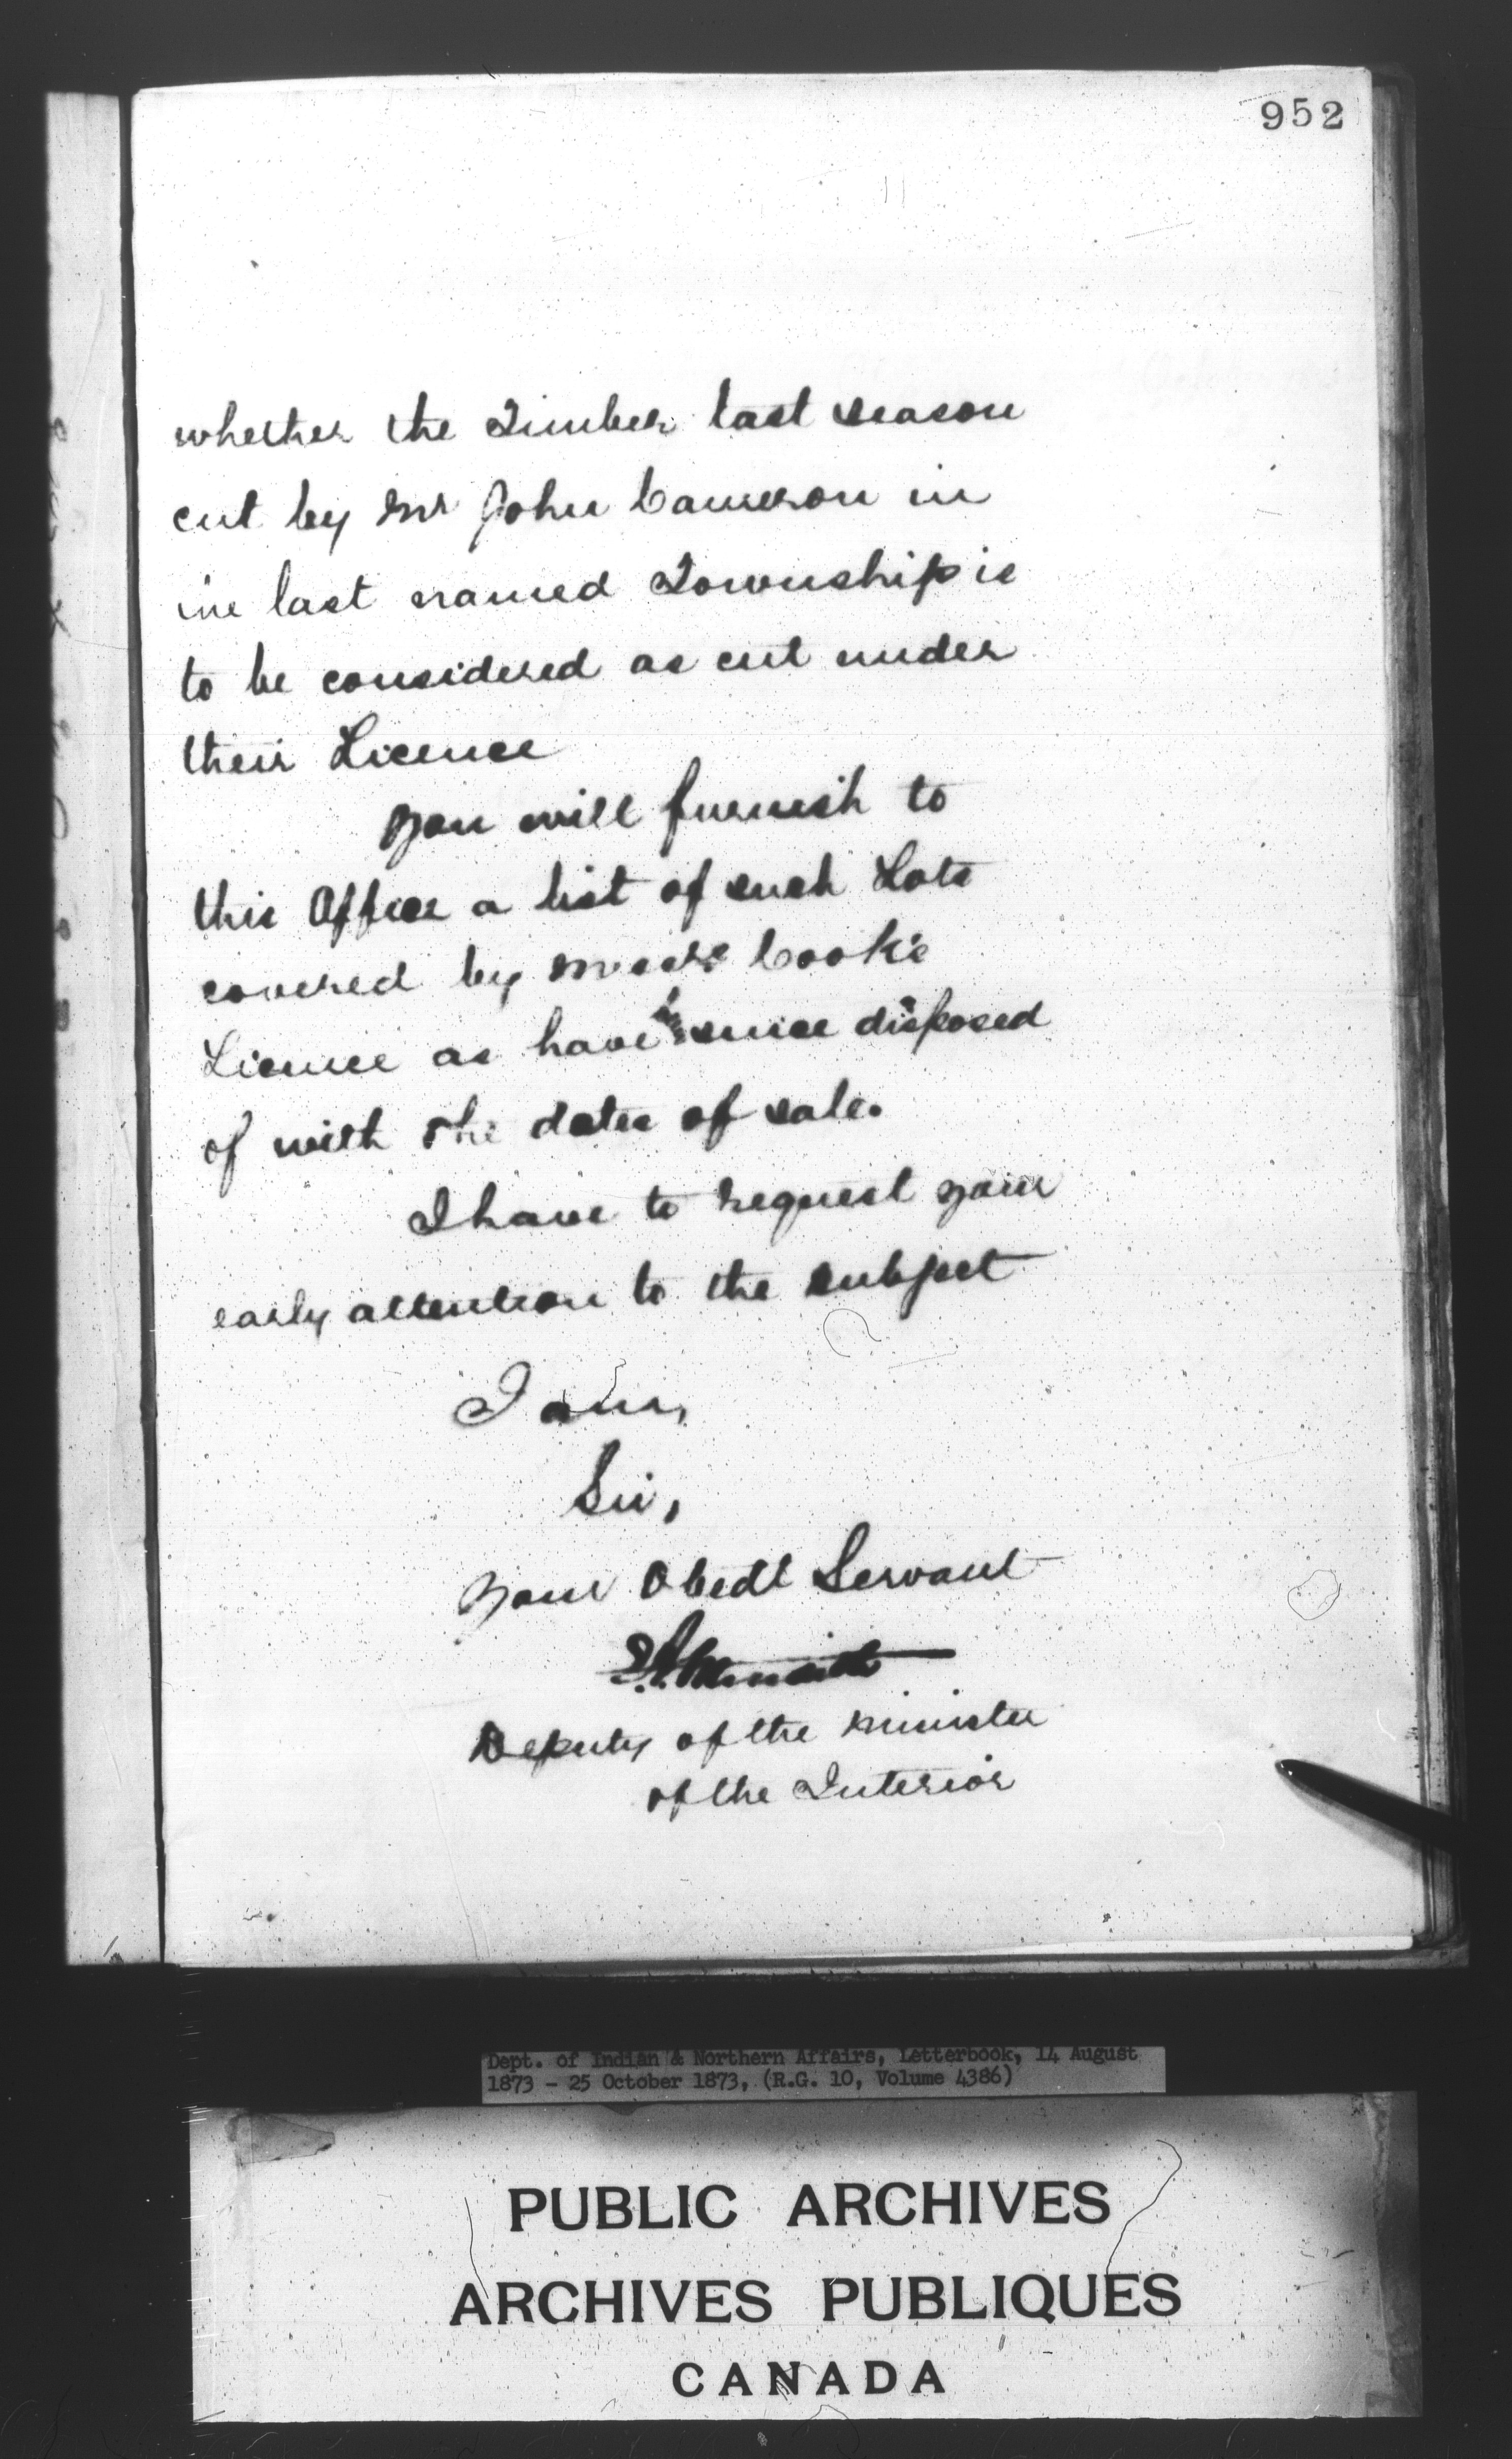 952
whether the Timber last season
cut by Mr John Cameron in
the last named Township is
to be considered as cut under
their Licence
You will furnish to
this Office a list of such Lots
covered by Messrs Cook's
Licence as have been since disposed
of with the dates of sale.
I have to request your
early attention to the subject
I am,
Sir,
Your Obedt Servant
Deputy of the Minister
of the Interior
Dept. of Indian & Northern Affairs, Letterbook, 14 August
1873 - 25 October 1873, (R.G. 10, Volume 4386)
PUBLIC ARCHIVES
ARCHIVES PUBLIQUES
CANADA